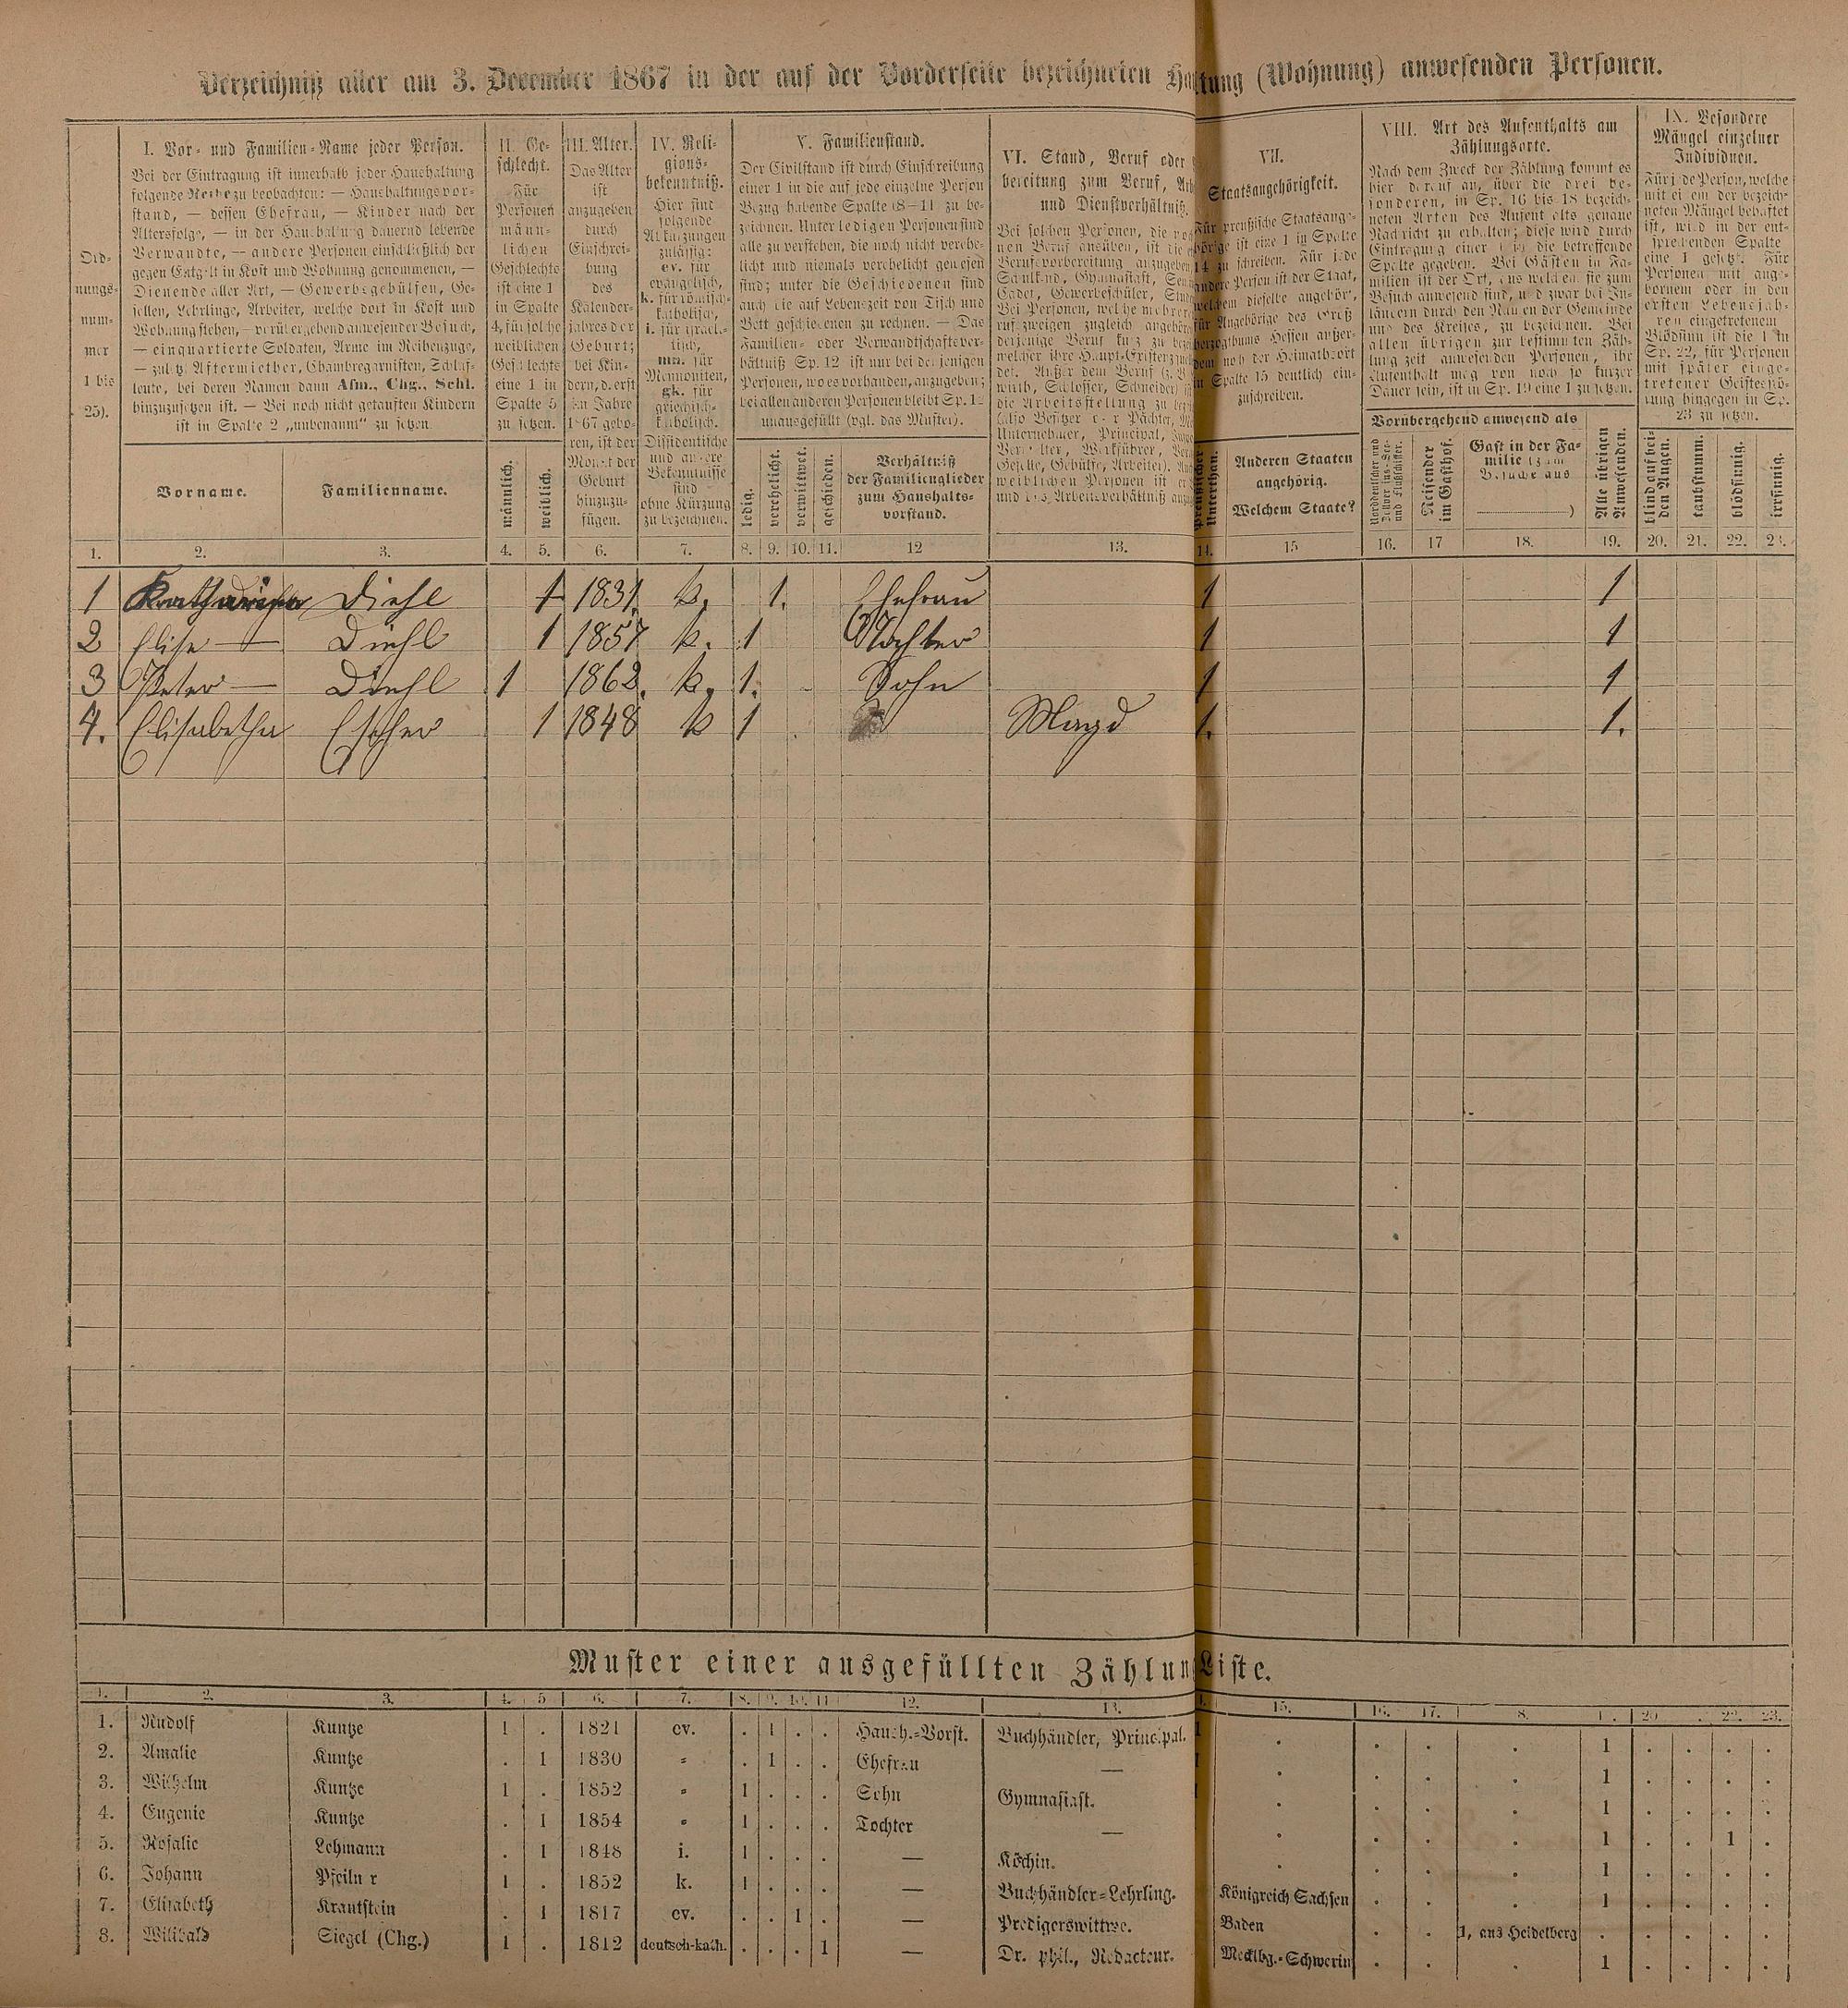 Verzeichniß aller am 3. December 1867 in der auf der Vorderseite bezeichneten Haltung (Wohnung) anwesenden Personen.
Ord-
nungs-
num-
mer
1 bis
25).
I. Vor- und Familien-Name jeder Person.
Bei der Eintragung ist innerhalb jeder Haushaltung
folgende Reihe zu beobachten: — Haushaltungsvor-
stand, — dessen Ehefrau, — Kinder nach der
Altersfolge, — in der Haushaltung dauernd lebende
Verwandte, — andere Personen einschließlich der
gegen Entgelt in Kost und Wohnung genommenen, —
Dienende aller Art, — Gewerbsgehülfen, Ge-
sellen, Lehrlinge, Arbeiter, welche dort in Kost und
Wohnung stehen, — vorübergehend anwesender Besuch,
— einquartierte Soldaten, Arme im Reihenzuge,
— zuletzt Aftermiether, Chambregarnisten, Schlaf-
leute, bei deren Namen dann Afm., Chg., Schl.
hinzuzusetzen ist. — Bei noch nicht getauften Kindern
ist in Spalte 2 „unbenannt" zu setzen.
Vorname.
Familienname.
II. Ge-
schlecht.
Für
Personen
männ-
lichen
Geschlechts
ist eine 1
in Spalte
4, für solche
weiblichen
Geschlechts
eine 1 in
Spalte 5
zu setzen.
männlich.
weiblich.
III. Alter.
Das Alter
ist
anzugeben
durch
Einschrei-
bung
des
Kalender-
jahres der
Geburt;
bei Kin-
dern, d. erst
im Jahre
1867 gebo-
ren, ist der
Monat der
Geburt
hinzuzu-
fügen.
IV. Reli-
gions-
bekenntniß.
Hier sind
folgende
Abkürzungen
zulässig:
ev. für
evangelisch,
k. für römisch-
katholisch,
i. für israel-
itisch,
mn. für
Mennoniten,
gk. für
griechisch-
katholisch.
Dissidentische
und andere
Bekenntnisse
sind
ohne Kürzung
zu bezeichnen.
V. Familienstand.
Der Civilstand ist durch Einschreibung
einer 1 in die auf jede einzelne Person
Bezug habende Spalte (8—11) zu be-
zeichnen. Unter ledigen Personen sind
alle zu verstehen, die noch nicht verehe-
licht und niemals verehelicht gewesen
sind; unter die Geschiedenen sind
auch die auf Lebenszeit von Tisch und
Bett geschiedenen zu rechnen. — Das
Familien- oder Verwandtschaftsver-
hältniß Sp. 12 ist nur bei denjenigen
Personen, wo es vorhanden, anzugeben;
bei allen anderen Personen bleibt Sp. 12
unausgefüllt (vgl. das Muster).
ledig.
verehelicht.
verwittwet.
geschieden.
Verhältniß
der Familienglieder
zum Haushalts-
vorstand.
VI. Stand, Beruf oder
bereitung zum Beruf, Arb
und Dienstverhältniß.
VII.
Staatsangehörigkeit.
Für preußische Staatsange-
hörige ist eine 1 in Spalte
14 zu schreiben. Für jede
andere Person ist der Staat,
welchem dieselbe angehört,
für Angehörige des Groß-
herzogthums Hessen außer-
dem noch der Heimathsort
in Spalte 15 deutlich ein-
zuschreiben.
Preußischer
Unterthan.
Anderen Staaten
angehörig.
Welchem Staate?
VIII. Art des Aufenthalts am
Zählungsorte.
Nach dem Zweck der Zählung kommt es
hier darauf an, über die drei be-
sonderen, in Sp. 16 bis 18 bezeich-
neten Arten des Aufenthalts genaue
Nachricht zu erhalten; diese wird durch
Eintragung einer 1 in die betreffende
Spalte gegeben. Bei Gästen in Fa-
milien ist der Ort, aus welchem sie zum
Besuch anwesend sind, und zwar bei In-
ländern durch den Namen der Gemeinde
und des Kreises, zu bezeichnen. Bei
allen übrigen zur bestimmten Zäh-
lungszeit anwesenden Personen, ihr
Aufenthalt mag von noch so kurzer
Dauer sein, ist in Sp. 19 eine 1 zu setzen.
Vorübergehend anwesend als
Reisender
im Gasthof.
Gast in der Fa-
milie (zum
Besuche aus
)
Alle übrigen
Anwesenden.
IX. Besondere
Mängel einzelner
Individuen.
Für jede Person, welche
mit einem der bezeich-
neten Mängel behaftet
ist, wird in der ent-
sprechenden Spalte
eine 1 gesetzt. Für
Personen mit ange-
bornem oder in den
ersten Lebensjah-
ren eingetretenem
Blödsinn ist die 1 in
Sp. 22, für Personen
mit später einge-
tretener Geistesstö-
rung hingegen in Sp.
23 zu setzen.
blind auf bei-
den Augen.
taubstumm.
blödsinnig.
irrsinnig.
1. 2. 3. 4. 5. 6. 7. 8. 9. 10. 11. 12 13. 14. 15 16. 17 18. 19. 20. 21. 22. 23.
1 Katharina Diehl 1 1831. k. 1. Ehefrau 1 1
2 Elise — Diehl 1 1857 k. 1 Tochter 1 1
3 Peter — Diehl 1 1862. k. 1. Sohn 1 1
4. Elisabetha Escher 1 1848 k 1 Magd 1. 1.
Muster einer ausgefüllten Zählungsliste.
1. 2. 3. 4. 5 6. 7. 8. 9. 10. 11 12. 13. 15. 16. 17. 8. 20 22. 23.
1. Rudolf Kuntze 1 . 1821 ev. . 1 . . Haush.-Vorst. Buchhändler, Principal. 1 . . . . 1 . . . .
2. Amalie Kuntze . 1 1830 = . 1 . . Ehefrau — 1 . . . . 1 . . . .
3. Wilhelm Kuntze 1 . 1852 = 1 . . . Sohn Gymnasiast. 1 . . . . 1 . . . .
4. Eugenie Kuntze . 1 1854 = 1 . . . Tochter — . . . . 1 . . 1 .
5. Rosalie Lehmann . 1 1848 i. 1 . . . — Köchin. . . . . 1 . . . .
6. Johann Pfeilner 1 . 1852 k. 1 . . . — Buchhändler-Lehrling. Königreich Sachsen . . . 1 . . . .
7. Elisabeth Krautstein . 1 1817 ev. . . 1 . — Predigerswittwe. Baden . . 1, aus Heidelberg . . . . .
8. Wilibald Siegel (Chg.) 1 . 1812 deutsch-kath. . . . 1 — Dr. phil., Redacteur. Mecklbg.-Schwerin . . . 1 . . . .